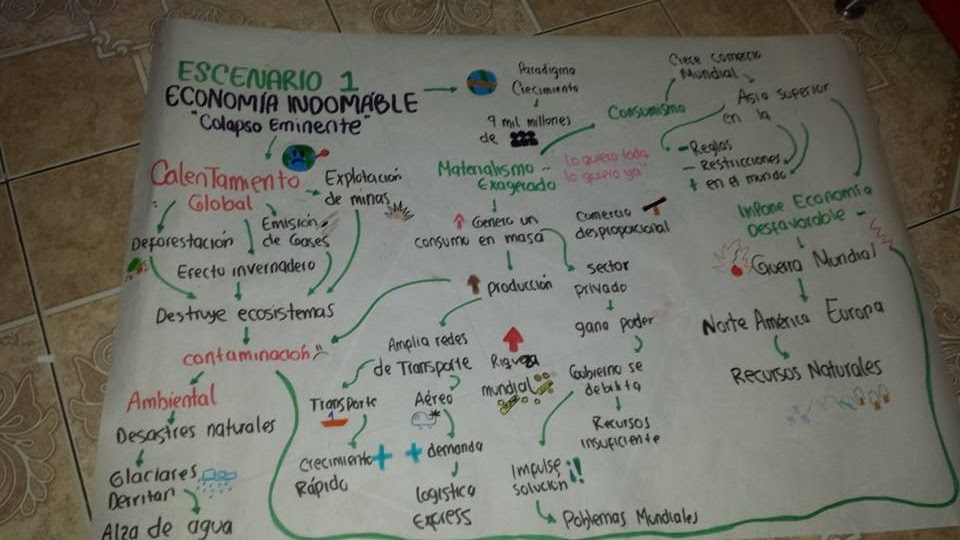 ESCENARIO 1
ECONOMÍA INDOMABLE
"Colapso Eminente"
Calentamiento
Global
Explotación
de minas
Deforestación
Emisión
de Gases
Efecto invernadero
Destruye ecosistemas
contaminación
Ambiental
Desastres naturales
Glaciares
Derritan
Alza de agua
Paradigma
Crecimiento
9 mil millones
de
Consumismo
Crece comercio
Mundial
Asia superior
en la
- Reglas
- Restricciones
+ en el mundo
Materialismo -
Exagerado
lo quiero todo
lo quiero ya"
Genera un
consumo en masa
Comercio
desproporcional
producción
sector
privado
gana poder
Gobierno se
debilita
Recursos
insuficiente
Impulse
solución ¡!
Problemas Mundiales
Amplia redes
de Transporte
Riqueza
mundial
Transporte
Aéreo
Crecimiento +
Rápido
+ demanda
logistica
Express
Impone Economía
Desfavorable -
Guerra Mundial
Norte América Europa
Recursos Naturales